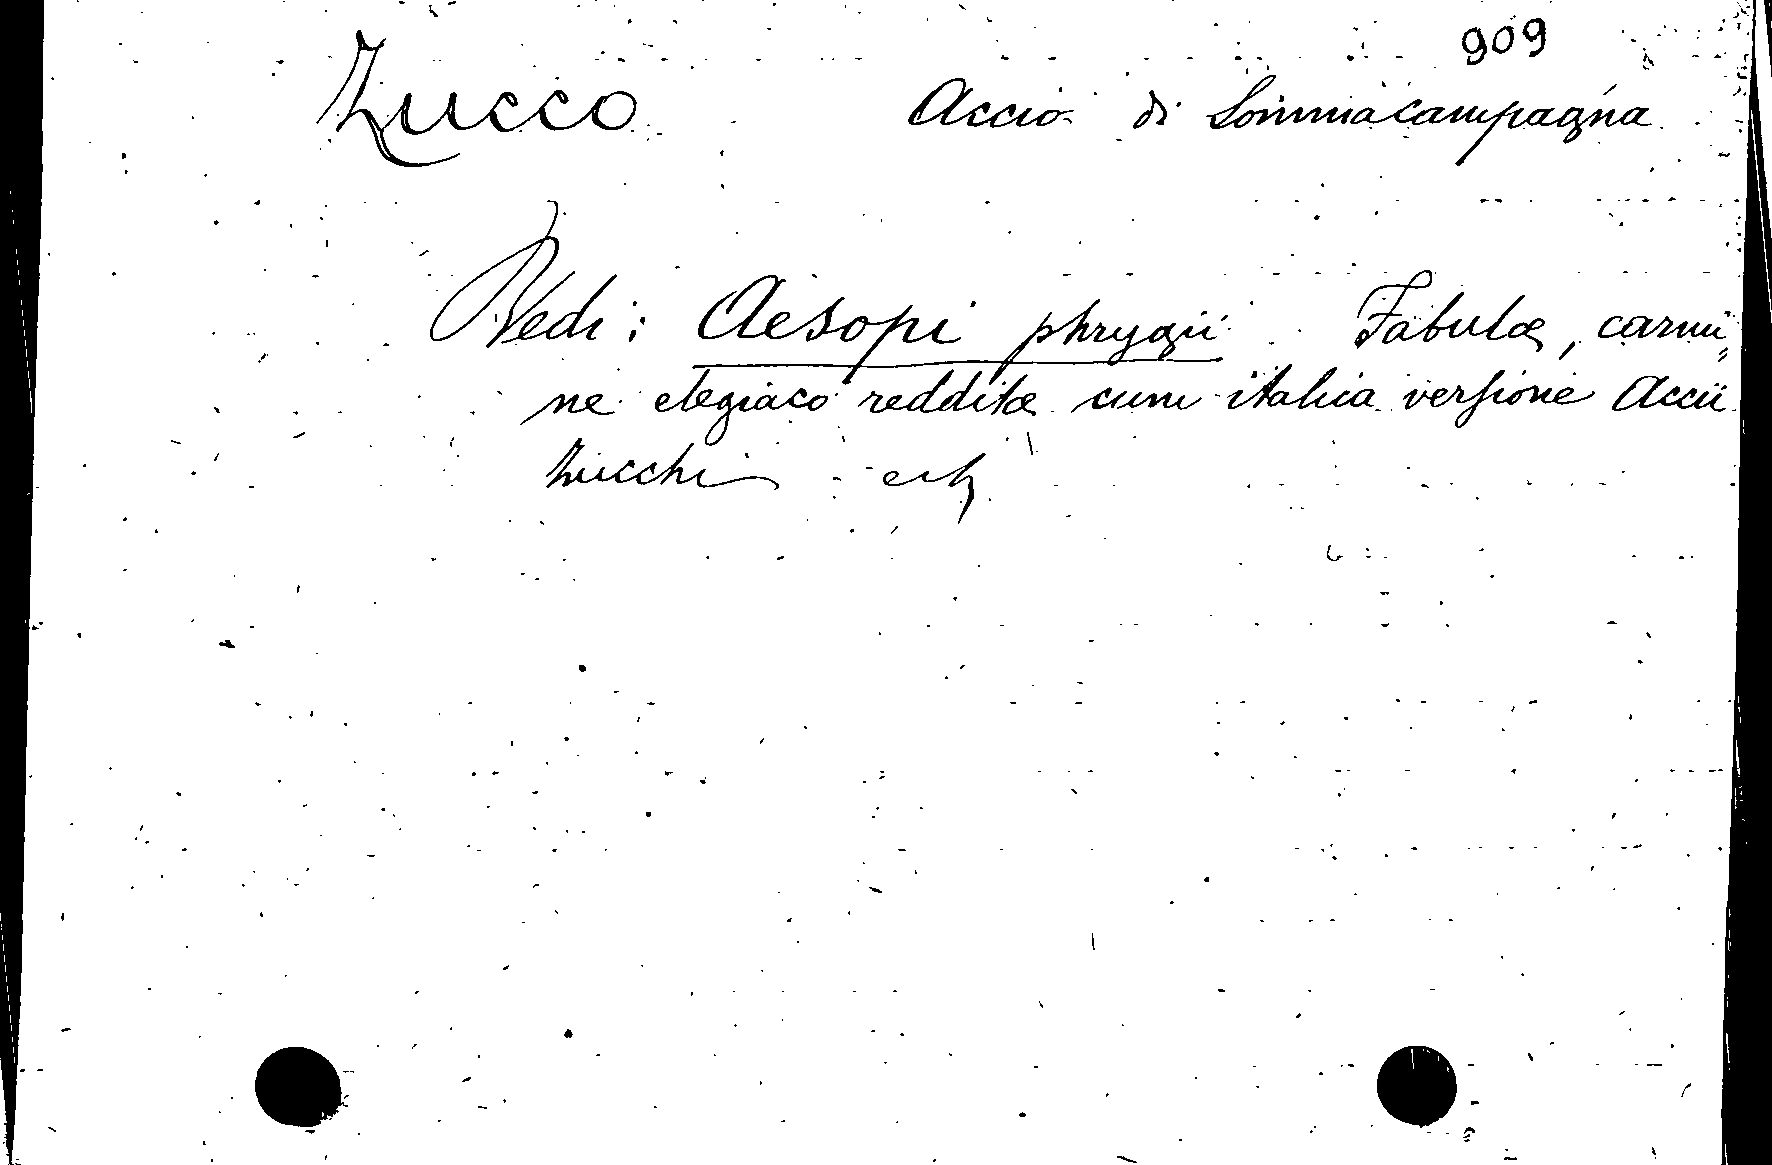 909
Zucco Accio di Sommacampagna
Vedi: Aesopi phrygii Fabulæ, carmi„
ne elegiaco redditæ cum italica versione Accii
Zucchi etc